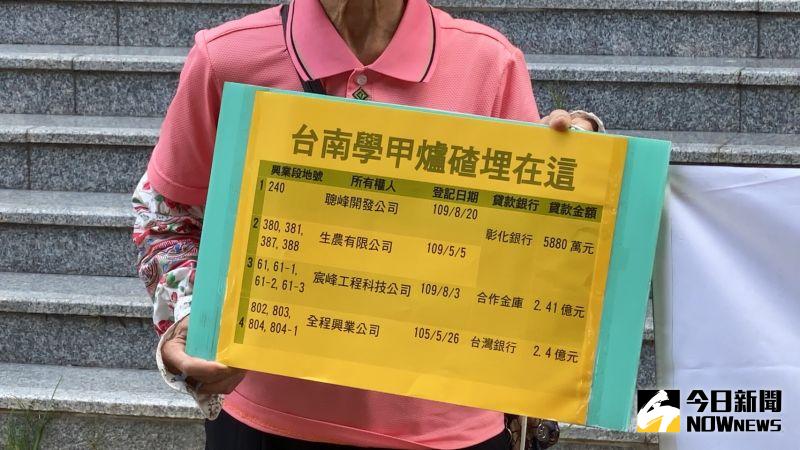 台南學甲爐碴埋在這
興業段地號 所有權人 登記日期 貸款銀行 貸款金額
1 240 聰峰開發公司 109/8/20 彰化銀行 5880萬元
2 380, 381, 387, 388 生農有限公司 109/5/5
3 61, 61-1, 61-2, 61-3 宸峰工程科技公司 109/8/3 合作金庫 2.41億元
4 802, 803, 804, 804-1 全程興業公司 105/5/26 台灣銀行 2.4億元
今日新聞
NOWNEWS